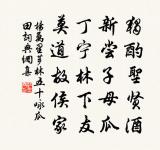 獨酌聖賢酒
新嘗子母瓜
丁寧林下友
莫道故侯家
楊萬里芗林五十咏瓜
田詞典網書